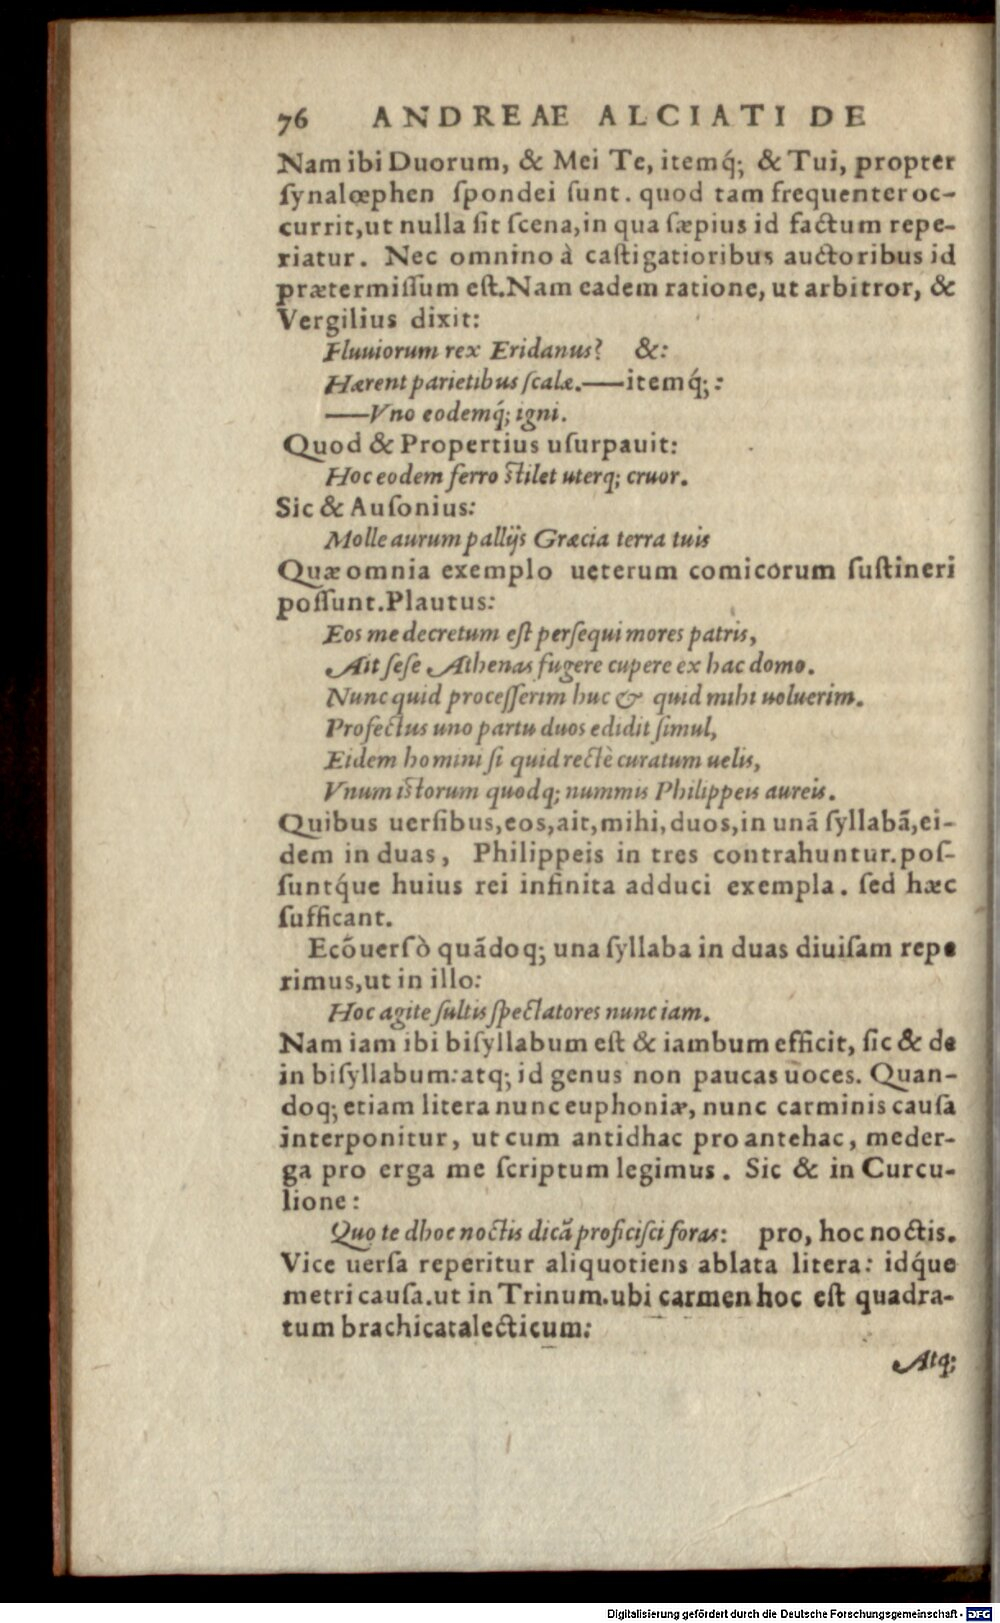 76 ANDREAE ALCIATI DE
Nam ibi Duorum, & Mei Te, itemq́; & Tui, propter
ſynalœphen ſpondei ſunt. quod tam frequenter oc-
currit, ut nulla ſit ſcena, in qua ſæpius id factum repe-
riatur. Nec omnino à caſtigatioribus auctoribus id
prætermiſſum eſt. Nam eadem ratione, ut arbitror, &
Vergilius dixit:
Fluuiorum rex Eridanus? &:
Hærent parietibus ſcalæ.—itemq́;:
—Vno eodemq́; igni.
Quod & Propertius uſurpauit:
Hoc eodem ferro ſtilet uterq; cruor.
Sic & Auſonius:
Molle aurum pallijs Græcia terra tuis
Quæ omnia exemplo ueterum comicorum ſuſtineri
poſſunt. Plautus:
Eos me decretum eſt perſequi mores patris,
Ait ſeſe Athenas fugere cupere ex hac domo.
Nunc quid proceſſerim huc & quid mihi uoluerim.
Profectus uno partu duos edidit ſimul,
Eidem homini ſi quid rectè curatum uelis,
Vnum iſtorum quodq; nummis Philippeis aureis.
Quibus uerſibus, eos, ait, mihi, duos, in unã ſyllabã, ei-
dem in duas, Philippeis in tres contrahuntur. poſ-
ſuntq́ue huius rei infinita adduci exempla. ſed hæc
ſufficant.
Ecõuerſò quãdoq; una ſyllaba in duas diuiſam repe
rimus, ut in illo:
Hoc agite ſultis ſpectatores nunc iam.
Nam iam ibi biſyllabum eſt & iambum efficit, ſic & de
in biſyllabum: atq; id genus non paucas uoces. Quan-
doq; etiam litera nunc euphoniæ, nunc carminis cauſa
interponitur, ut cum antidhac pro antehac, meder-
ga pro erga me ſcriptum legimus. Sic & in Curcu-
lione:
Quo te dhoc noctis dicã proficiſci foras: pro, hoc noctis.
Vice uerſa reperitur aliquotiens ablata litera: idq́ue
metri cauſa. ut in Trinum. ubi carmen hoc eſt quadra-
tum brachicatalecticum:
Atq;
Digitalisierung gefördert durch die Deutsche Forschungsgemeinschaft - DFG